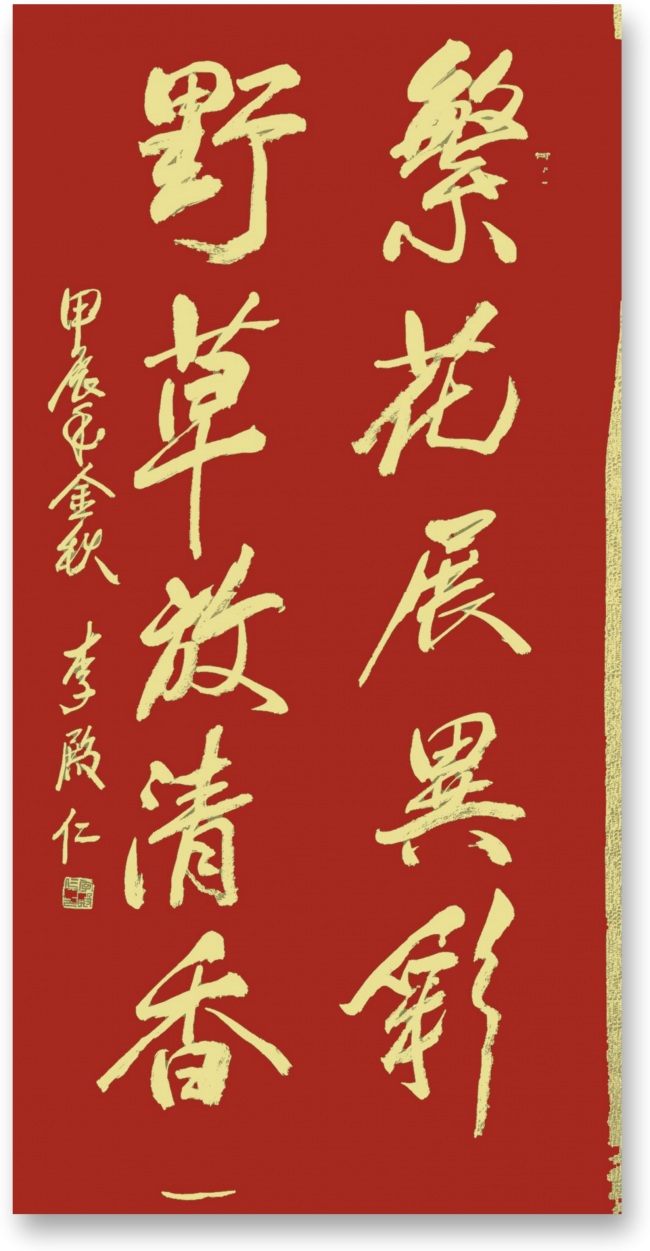 繁花展異彩
野草放清香
甲辰年金秋 李殿仁